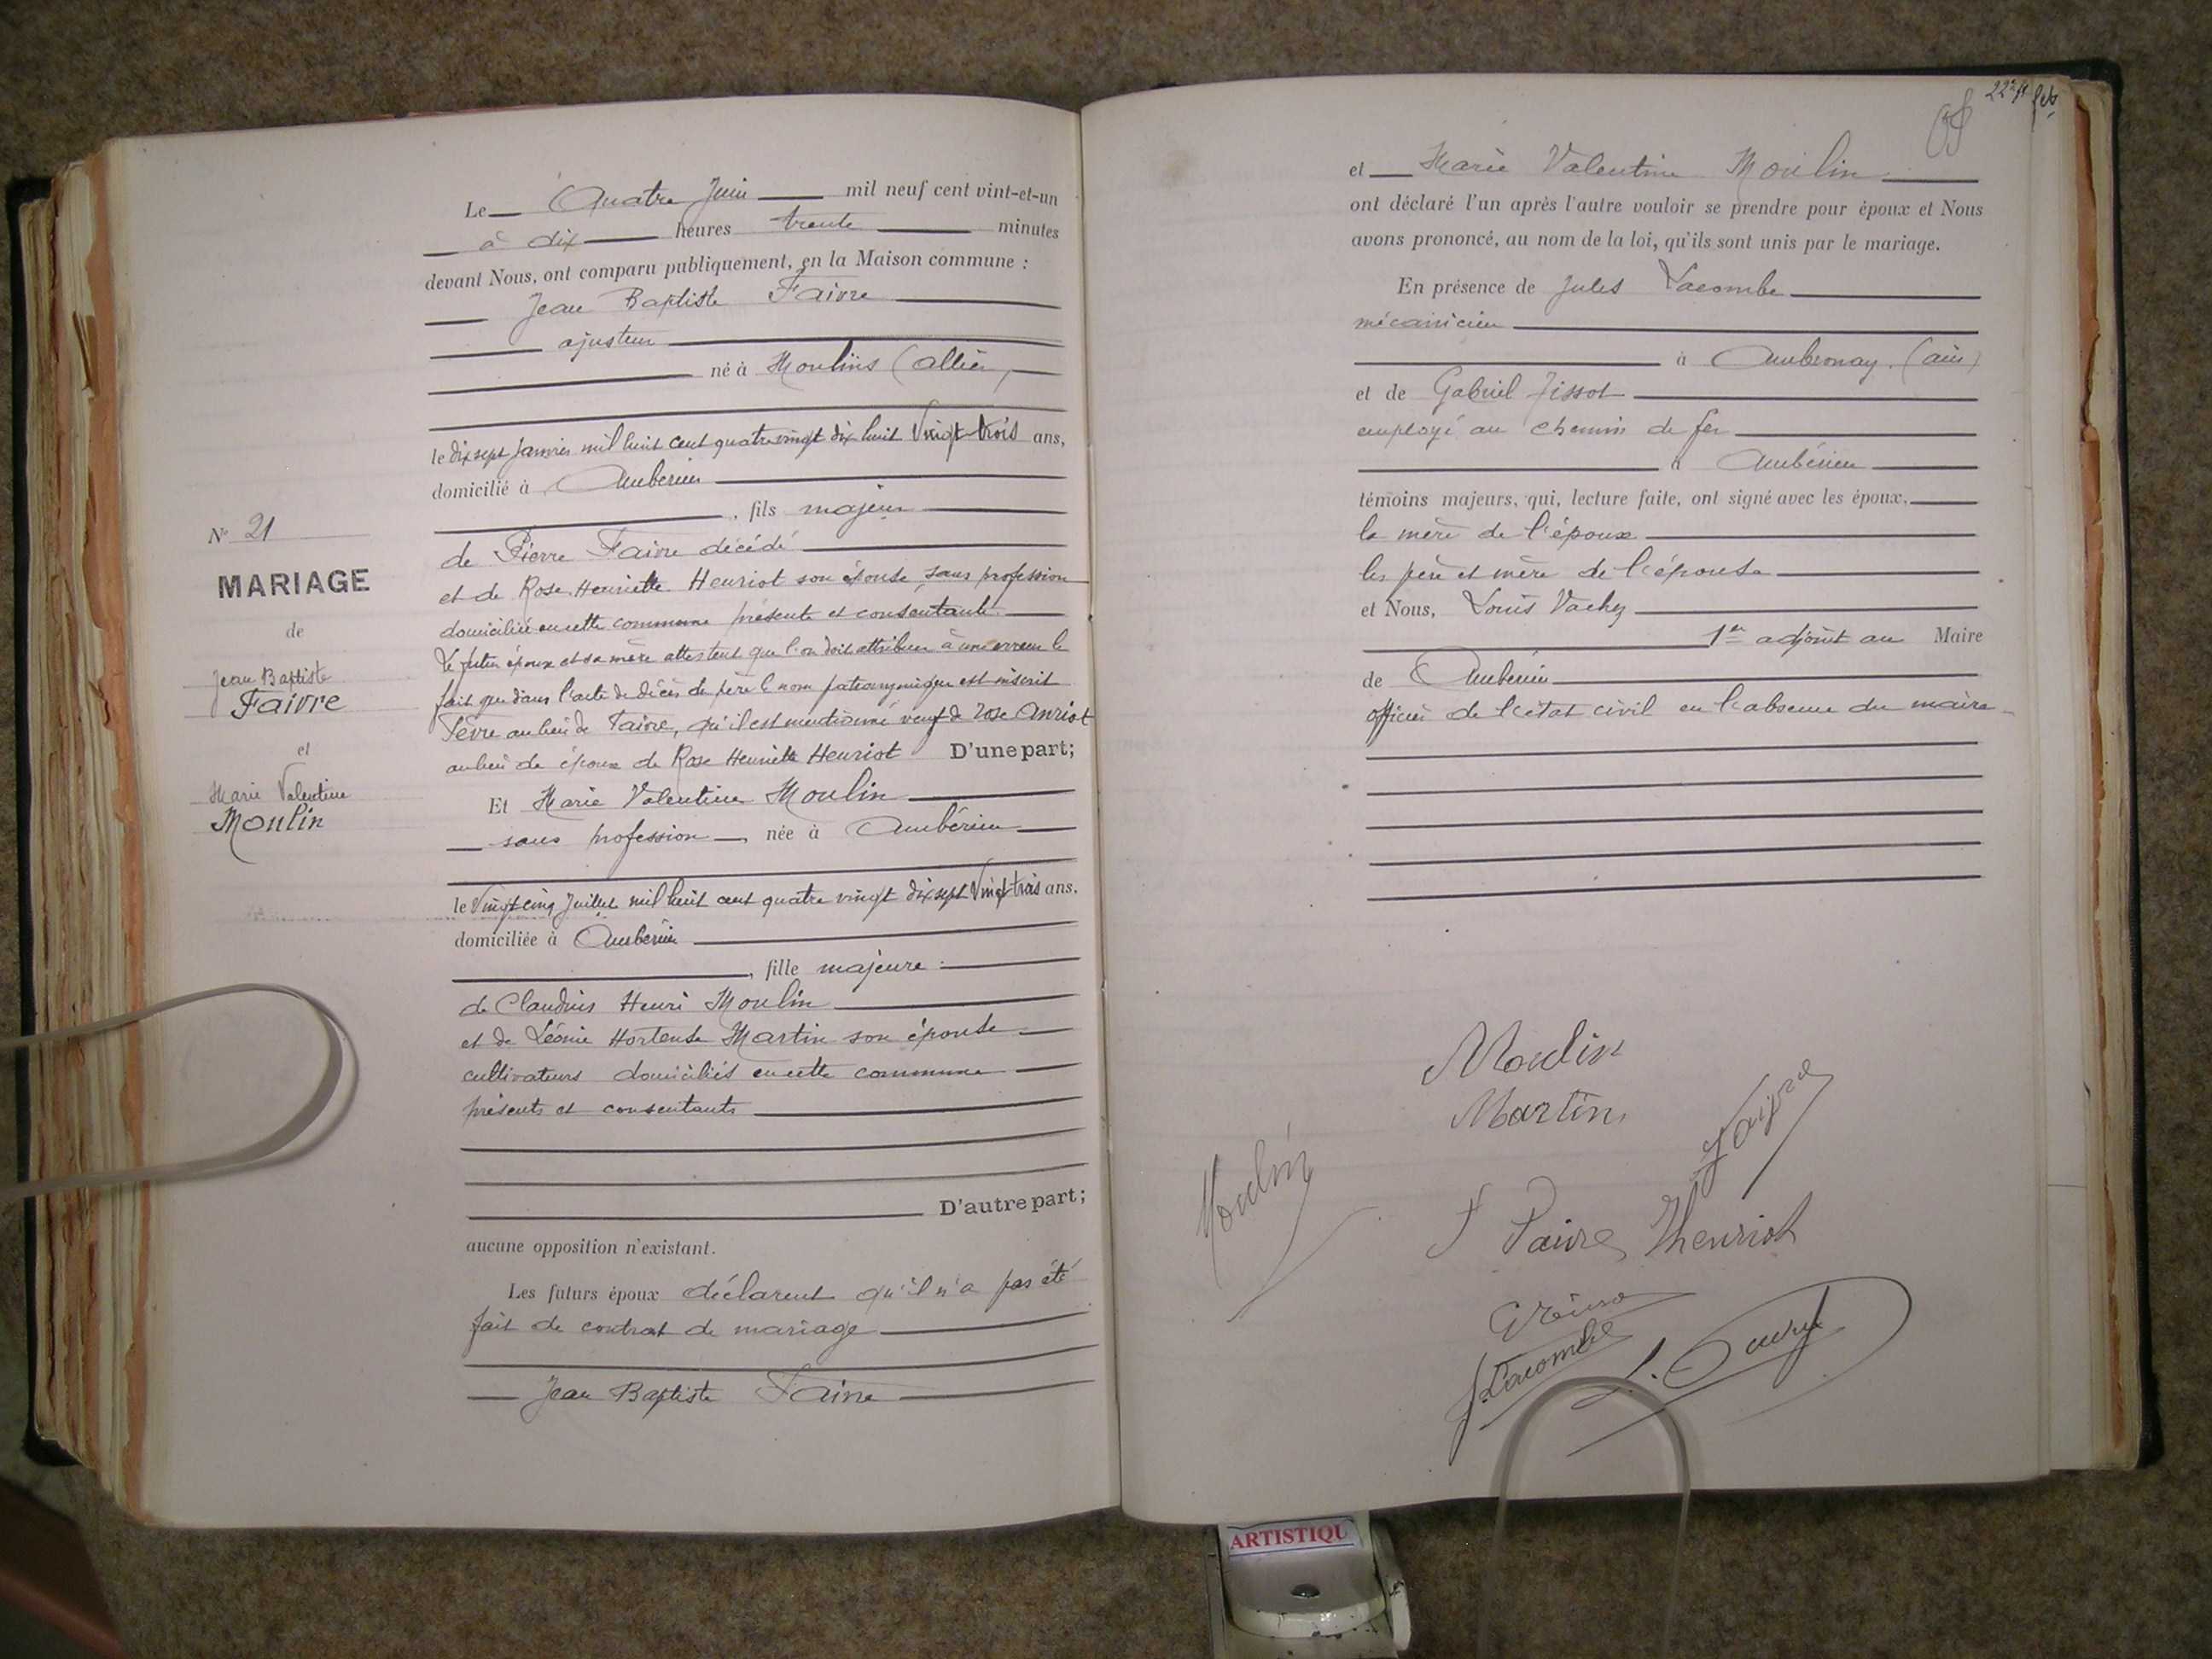 N° 21
MARIAGE
de
Jean Baptiste
Faivre
et
Marie Valentine
Moulin
Le Quatre Juin mil neuf cent vint-et-un
à dix heures trente minutes
devant Nous, ont comparu publiquement, en la Maison commune :
Jean Baptiste Faivre
ajusteur
né à Moulins (Allier)
le dix sept Janvier mil huit cent quatre vingt dix huit Vingt-trois ans,
domicilié à Ambérieu
, fils majeur
de Pierre Faivre décédé
et de Rose Henriette Henriot son épouse sans profession
domiciliée en cette commune présente et consentante
Le futur époux et sa mère attestent que l'on doit attribuer à une erreur le
fait que dans l'acte de décès du père le nom patronymique est inscrit
Fèvre au lieu de Faivre, qu'il est mentionné veuf de Rose Anriot
au lieu de époux de Rose Henriette Henriot D'une part;
Et Marie Valentine Moulin
sans profession, née à Ambérieu
le Vingt cinq Juillet mil huit cent quatre vingt dix sept Vingt-trois ans.
domiciliée à Ambérieu
, fille majeure
de Claudius Henri Moulin
et de Léonie Hortense Martin son épouse
cultivateurs domiciliés en cette commune
présents et consentants
D'autre part;
aucune opposition n'existant.
Les futurs époux déclarent qu'il n'a pas été
fait de contrat de mariage
Jean Baptiste Faivre
et Marie Valentine Moulin
ont déclaré l'un après l'autre vouloir se prendre pour époux et Nous
avons prononcé, au nom de la loi, qu'ils sont unis par le mariage.
En présence de Jules Lacombe
mécanicien
à Ambronay (Ain)
et de Gabriel Tissot
employé au chemin de fer
à Ambérieu
témoins majeurs, qui, lecture faite, ont signé avec les époux,
la mère de l'époux
les père et mère de l'épouse
et Nous, Louis Vachy
1er adjoint au Maire
de Ambérieu
officier de l'état civil en l'absence du maire
Moulin
Martin
Faivre
Moulin
F Faivre Henriot
J Lacombe
ARTISTIQU